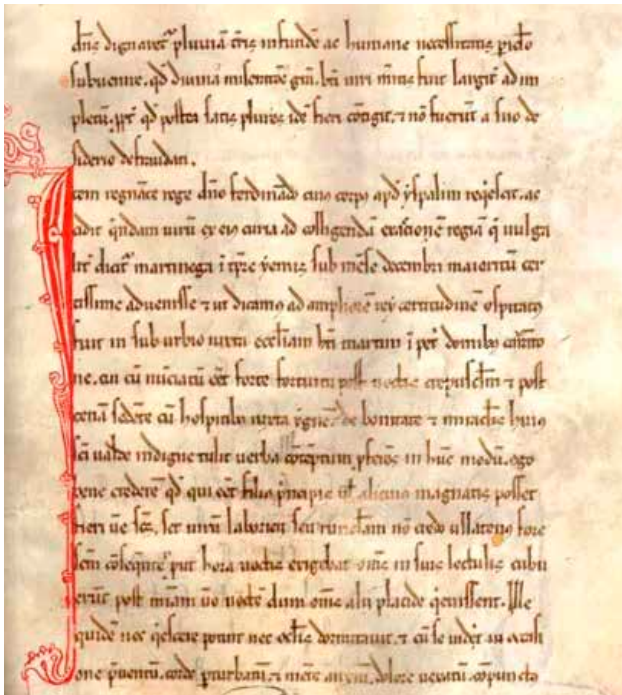 dn̄s dignaret᷑ pluuiā t̄ris infundẽ ac humane necessitatis pic̄lo
subuenire. qd̄ diuina mĩa b̄ti uiri m̃itis fuit largit᷑ ad im
pletū. ꝓpt᷑ qd̄ postea satis plures idē fieri cōtigit. ⁊ nō fuerūt a suo de
siderio defraudati.
Item regnāte rege dn̄o ferdinādo cuius corpus apd̄ yspalim reqescit. ac
cidit q̄ndam uirū ex eius curia ad colligendā exactionē regiā q̄ uulga
rit᷑ dicit᷑ martinega ī tp̄re yemis sub mēse decembri maioritū cer
tissime aduenisse ⁊ ut dicamus ad ampliorē rey certitudinē ospitatus
fuit in suburbio iuxta eccl̄iam b̄ti martini ī pet᷑ domibus
ne. cū nūciatū eēt forte fortuitu post noctis crepuscl̄m ⁊ post
cenā sedēte cū hospitibus iuxta ygnē. de bonitate ⁊ miraclis huius
sc̄i ualde indigne tulit uerba cōteptum ꝓferēs in hūc modū. ego
bene crederē qd̄ qui eēt filius p̄ncipis ul̄ alicuius magnatis posset
fieri uē sc̄s. set uirū laboricū seu ruriclam nō credo ullatenus fore
sc̄m cōseqnt᷑ put hora noctis exigebat om̄s in suis lectulis cubu
erūt post mīam ūo noctē dum om̄s alii placide qeuissent. Ille
quidē nec qescere potuit nec oclis dormitauit. ⁊ cū se uidet᷑
one puentū. corde ꝑturbatū. ⁊ mēte anxiū. dolore uexatū. cōpuncto